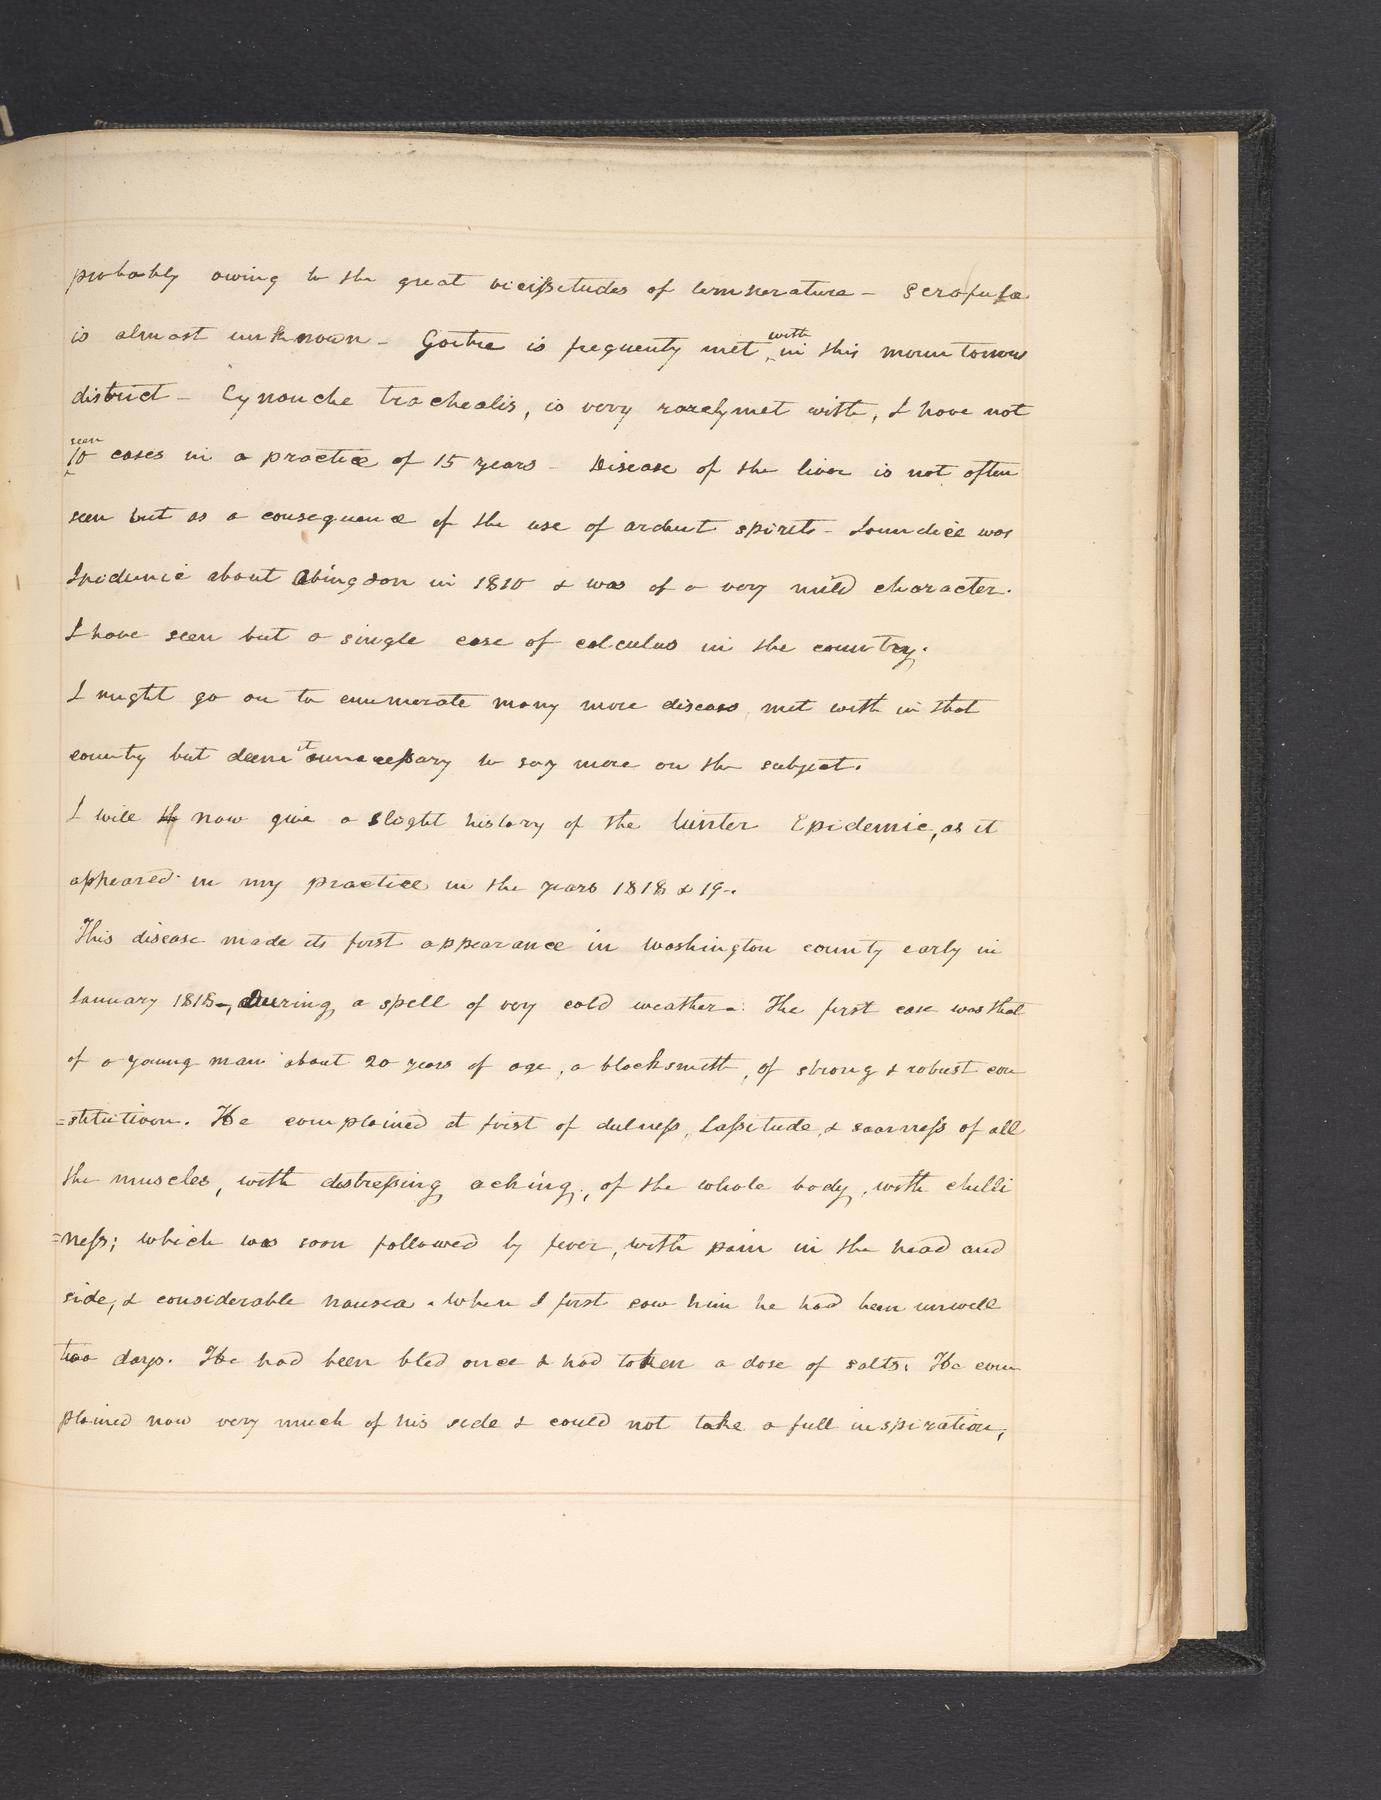 probably owing to the great vicissitudes of temperature - Scrofula
is almost unknown - Goitre is frequenty met with in this mountonous
district - Cynanche trachealis, is very rarely met with, I have not
seen 10 cases in a practice of 15 years - Disease of the liver is not often
seen but as a consequence of the use of ardent spirits - Jaundice was
Epidemic about Abingdon in 1810 & was of a very mild character.
I have seen but a single case of calculus in the country.
I might go on to enumerate many more diseases met with in that
county but deem it unnecessary to say more on the subject.
I will now give a slight history of the Winter Epidemic, as it
appeared in my practice in the years 1818 & 19-.
This disease made its first appearance in Washington county early in
January 1818-, during a spell of very cold weather-. The first case was that
of a young man about 20 years of age, a blacksmith, of strong & robust con
=stitution. He complained at first of dulness, Lassitude, & soarness of all
the muscles, with distressing aching, of the whole body, with chilli
=ness; which was soon followed by fever, with pain in the head and
side, & considerable nausea. When I first saw him he had been unwell
two days. He had been bled once & had taken a dose of salts. He com
plained now very much of his side & could not take a full inspiration,